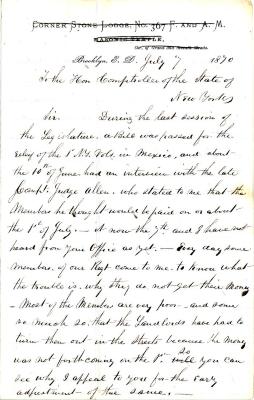 CORNER STONE LODGE, No. 367 F. AND A. M.
MASONIC TEMPLE,
Cor. of Grand and Seventh Streets.
Brooklyn E. D. July 7 1870
To the Hon Comptroller of the State of
New York
Sir. During the last session of
the Legislature, a Bill was passed for the
relief of the 1st N.Y. Vols. in Mexico, and about
the 10th of June had an interview with the late
Compt. Judge Allen, who stated to me that the
Members he thought would be paid on or about
the 1st of July. - it now the 7th and I have not
heard from your Office as yet. - Every day some
Members. of our Regt come to me. to know what
the trouble is, why they do not get their Money
- Most of the Members are very poor - and some
so much so, that the Landlords have had to
turn them out in the Streets because the Money
was not forthcoming on the 1st. So you can
see why I appeal to you for the early
adjustment of the same. -